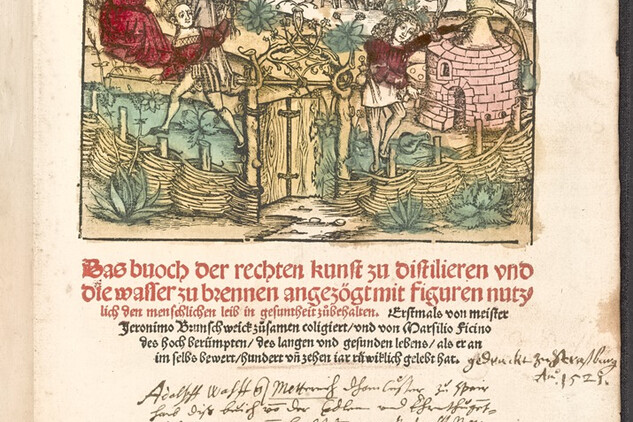 Das buoch der rechten kunst zu distilieren vnd
die wasser zu brennen angezögt mit figuren nutz/
lich den menschlichen leib in gesuntheit zůbehalten. Erstmals von meister
Jeronimo Brunschweick zůsamen coligiert/ vnd von Marsilio Ficino
des hoch berümpten/ des langen vnd gesunden lebens/ als er an
im selbs bewert/ hundert vñ zehen iar růwiklich gelebt hat.
gedruckt zu Straßburg
Aõ. 1521.
Adolff Wolff Metternich zu
hab diß buch von der Edlen vnd